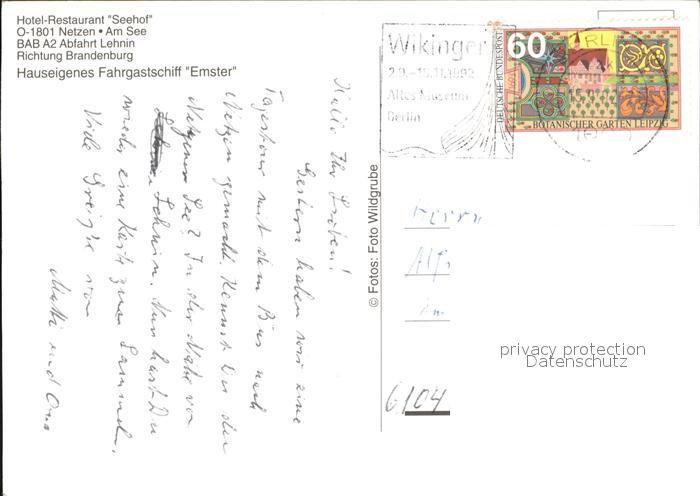 Hotel-Restaurant "Seehof"
O-1801 Netzen • Am See
BAB A2 Abfahrt Lehnin
Richtung Brandenburg
Hauseigenes Fahrgastschiff "Emster"
Wikinger
2.9.-15.11.1992
Altes Museum
Berlin
60
DEUTSCHE BUNDESPOST
BOTANISCHER GARTEN LEIPZIG
Hallo Ihr Lieben!
Gestern haben wir eine
Tagestour mit dem Bus nach
Netzen gemacht. Kennst Du den
Netzener See? In der Nähe von
Lehnin. Nun hast Du
wieder eine Karte zum Sammeln.
Viele Grüße von
Mutti und Oma
© Fotos: Foto Wildgrube
Herrn
Alf
6104
privacy protection
Datenschutz